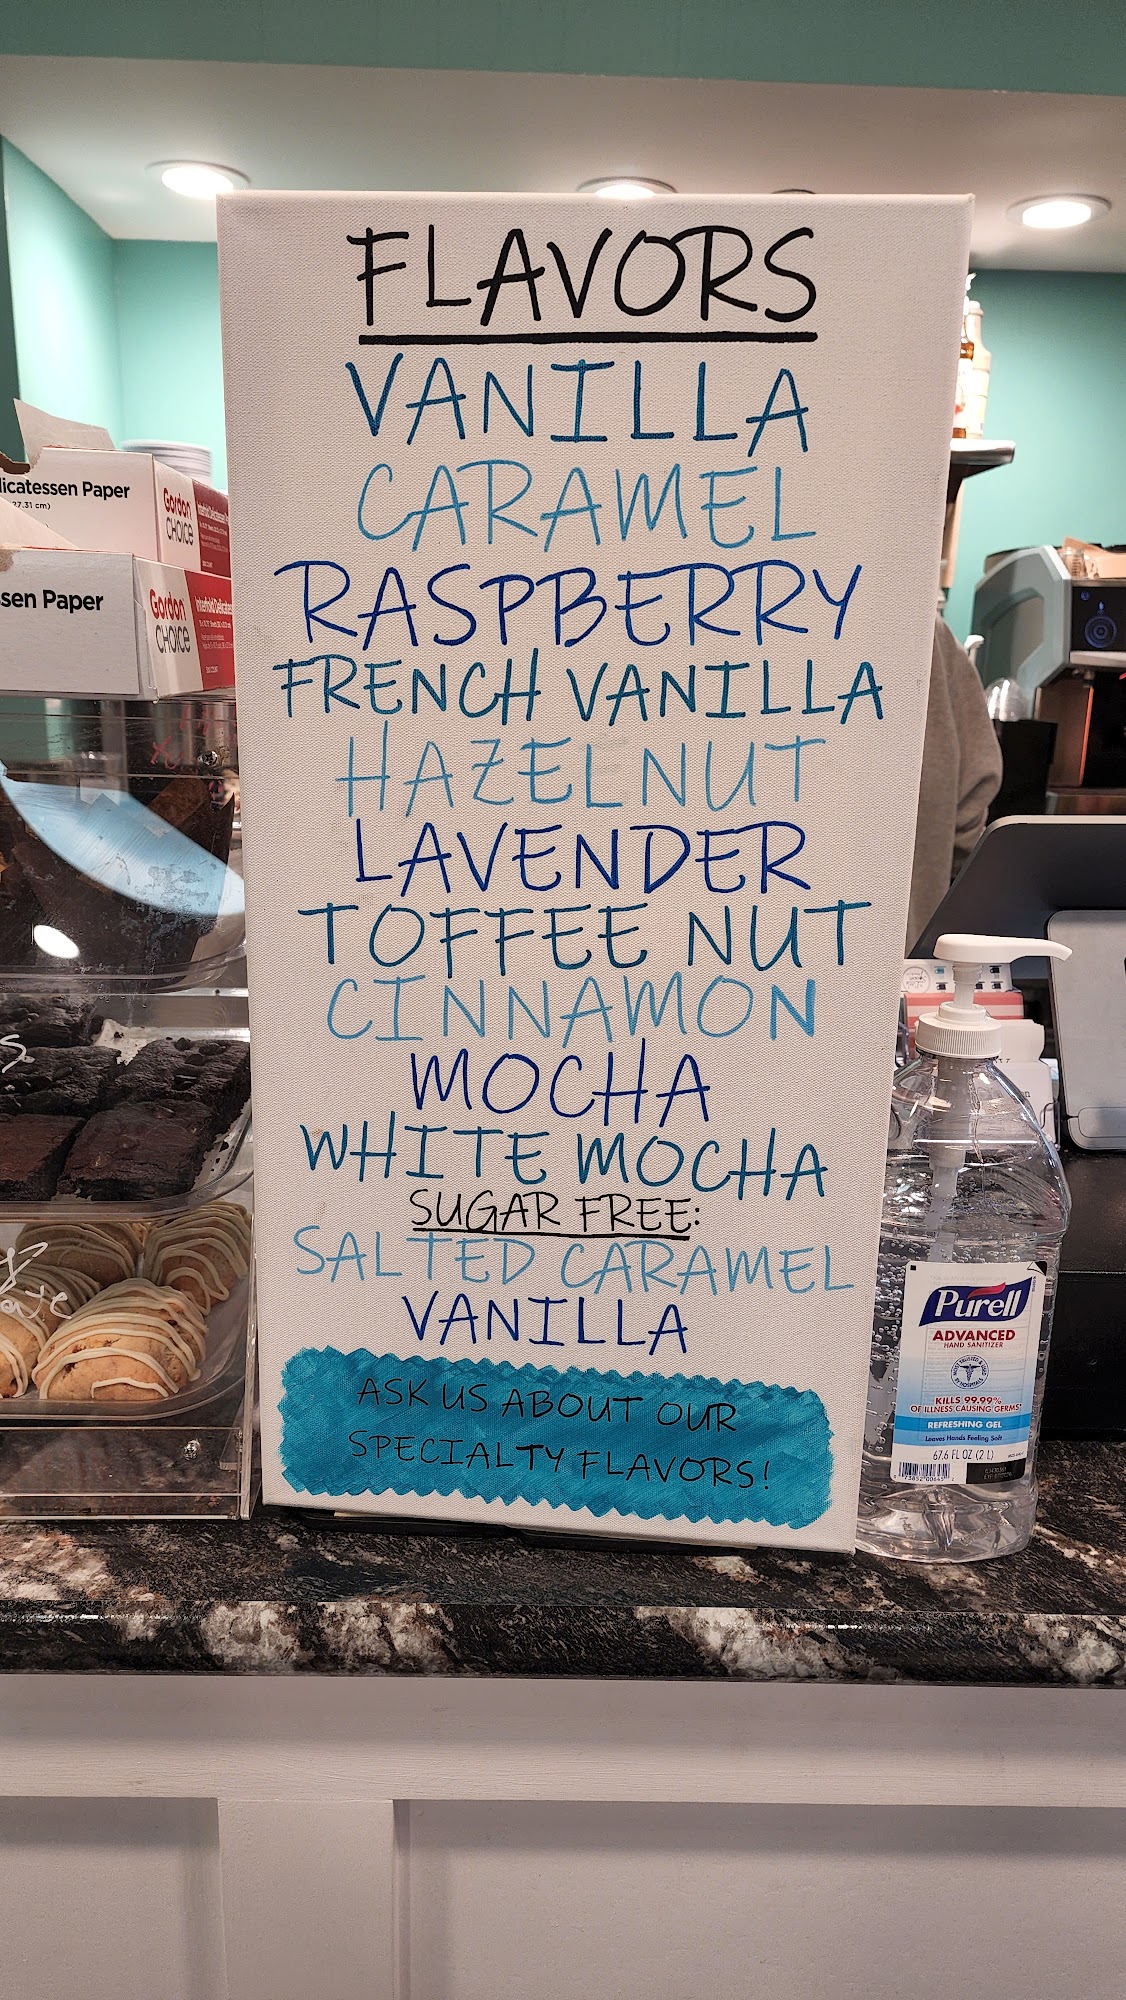 FLAVORS
VANILLA
CARAMEL
RASPBERRY
FRENCH VANILLA
HAZELNUT
LAVENDER
TOFFEE NUT
CINNAMON
MOCHA
WHITE MOCHA
SUGAR FREE:
SALTED CARAMEL
VANILLA
ASK US ABOUT OUR
SPECIALTY FLAVORS!
licatessen Paper
27.31 cm)
Gordon
CHOICE
ssen Paper
Gordon
CHOICE
Purell
ADVANCED
HAND SANITIZER
KILLS 99.99%
OF ILLNESS CAUSING GERMS*
REFRESHING GEL
Leaves Hands Feeling Soft
67.6 FL OZ (2 L)